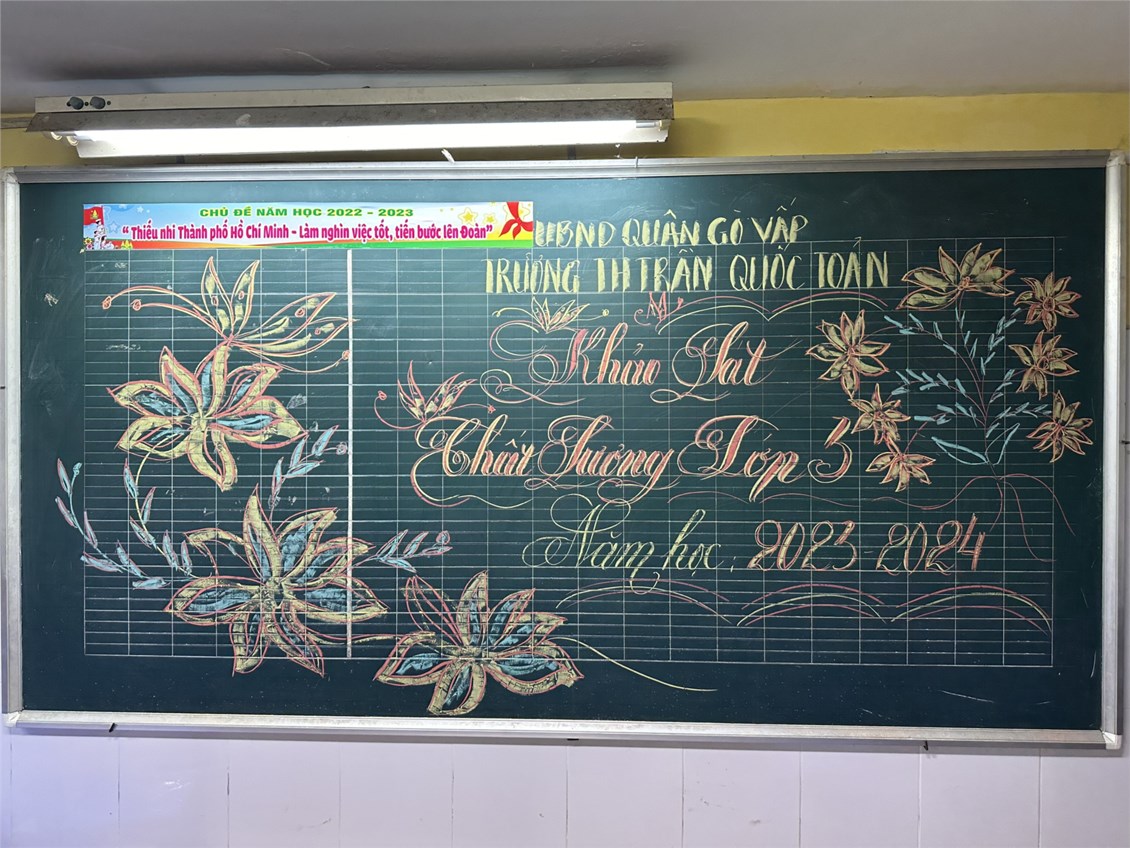 CHỦ ĐỀ NĂM HỌC 2022 - 2023
“ Thiếu nhi Thành phố Hồ Chí Minh - Làm nghìn việc tốt, tiến bước lên Đoàn”
UBND QUẬN GÒ VẤP
TRƯỜNG TH TRẦN QUỐC TOẢN
Khảo Sát
Chất Lượng Lớp 3
Năm học: 2023-2024